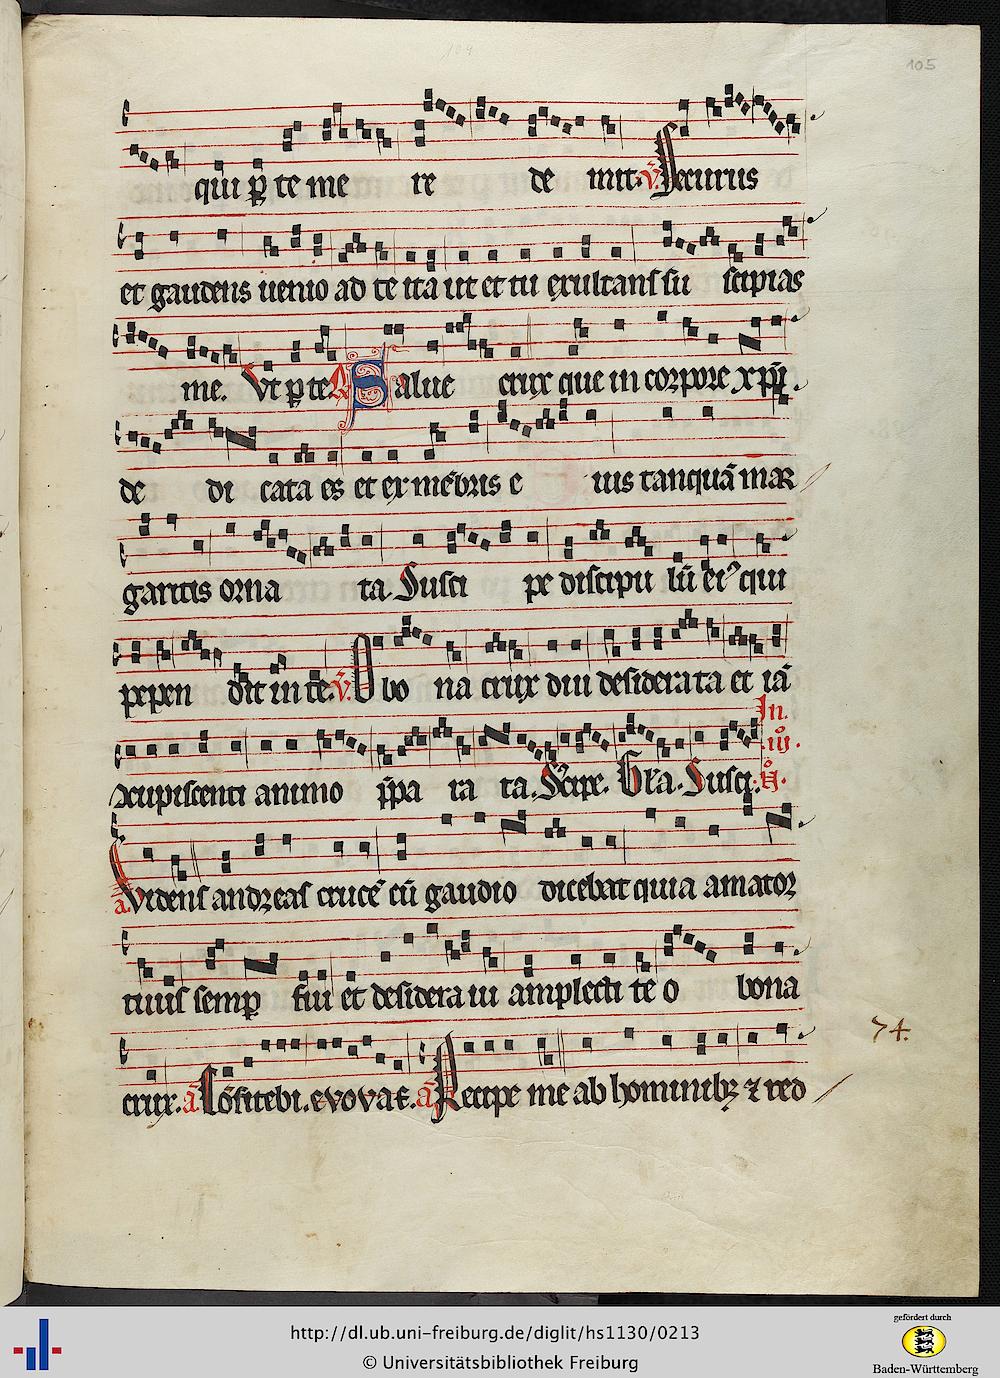 105
qui p te me re de mit. V. Securus
et gaudens uenio ad te ita ut et tu exultans su scipias
me. Vt p te R Salue crux que in corpore xpi
de di cata es et ex mēbris e ius tanquā mar
garitis orna ta. Susci pe discipu lū ei9 qui
pepen dit in te. V. O bo na crux diu desiderata et iā
In
concupiscenti animo ppa ra ta. Scipe. Gla. Susci.
iiio. N.
a. Videns andreas crucē cū gaudio dicebat quia amator
tuus semp fui et desidera ui amplecti te o bona
74.
crux. a Cōfitebi. evovae. a Recipe me ab hominibz et red
http://dl.ub.uni-freiburg.de/diglit/hs1130/0213
© Universitätsbibliothek Freiburg
gefördert durch
Baden-Württemberg